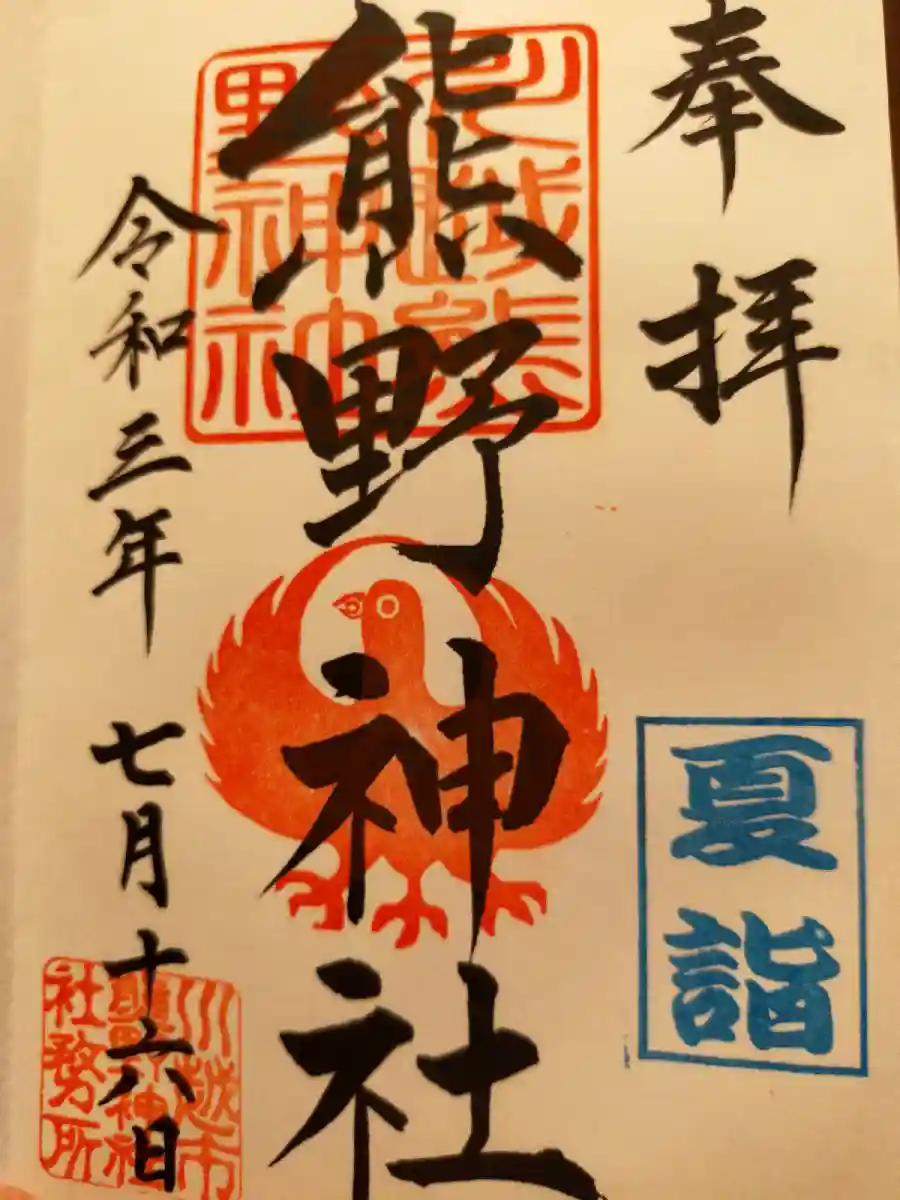 奉拝
夏詣
熊野神社
川越熊
野神社
令和三年 七月十六日
川越市
熊野神社
社務所